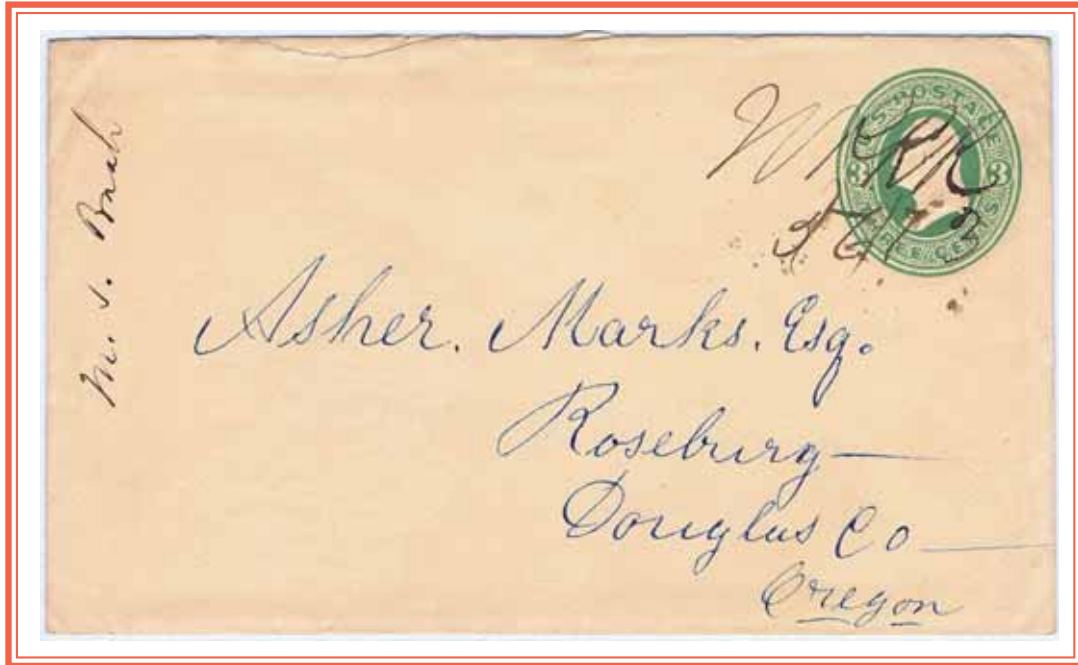 U.S. POSTAGE
3 3
THREE CENTS
M. S.
Asher. Marks. Esq.
Roseburg—
Douglas Co—
Oregon